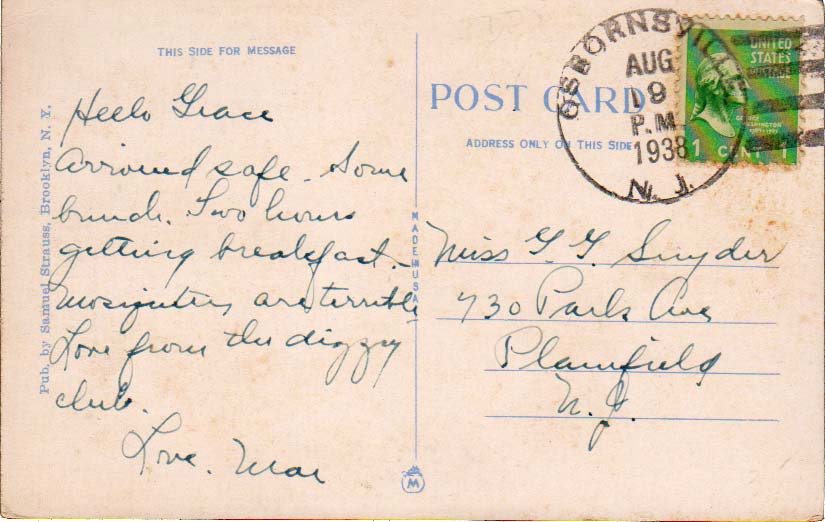 THIS SIDE FOR MESSAGE
Hello Grace
Arrived safe. Some
bunch. Two hours
getting breakfast.
Mosquitoes are terrible
Love from the dizzy
club.
Love. Mae
Pub. by Samuel Strauss, Brooklyn, N. Y.
MADE IN USA
M
POST CARD
ADDRESS ONLY ON THIS SIDE
OSBORNSVILLE
AUG
19
P.M.
1938
N. J.
UNITED
STATES
POSTAGE
GEORGE
WASHINGTON
1 CENT 1
Miss G. G. Snyder
730 Park Ave
Plainfield
N. J.